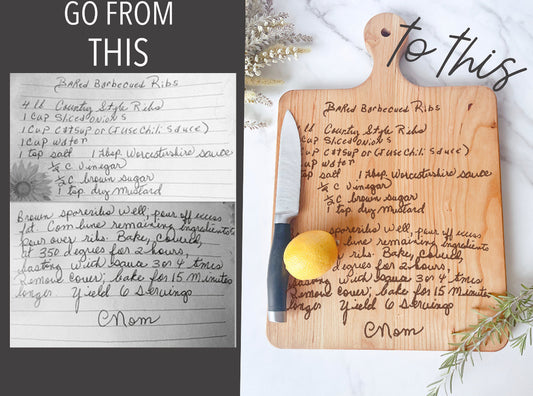 GO FROM
THIS
BaRed Barbecued Ribs
4 lb Country Style Ribs
1 Cup Sliced onions
1 Cup Catsup or (I use Chili Sauce)
1 Cup water
1 Tsp salt 1 Tbsp Worcustershire sauce
¼ C vinegar
¼ C brown sugar
1 tsp dry mustard
Brown spareribs well, pour off excess
fat. Combine remaining ingredients
pour over ribs. Bake, covered,
at 350 degrees for 2 hours,
basting with sauce 3 or 4 times
Remove cover; bake for 15 minutes
longer. Yield 6 Servings
Mom
to this
BaRed Barbecued Ribs
lb Country Style Ribs
Cup Sliced onions
Cup Catsup or (I use Chili Sauce)
Cup water
Tsp salt 1 Tbsp Worcustershire sauce
¼ C vinegar
¼ C brown sugar
1 tsp dry mustard
spareribs well, pour off excess
line remaining ingredients
ribs. Bake, covered,
degrees for 2 hours,
basting with sauce 3 or 4 times
Remove cover; bake for 15 minutes
longer. Yield 6 Servings
Mom